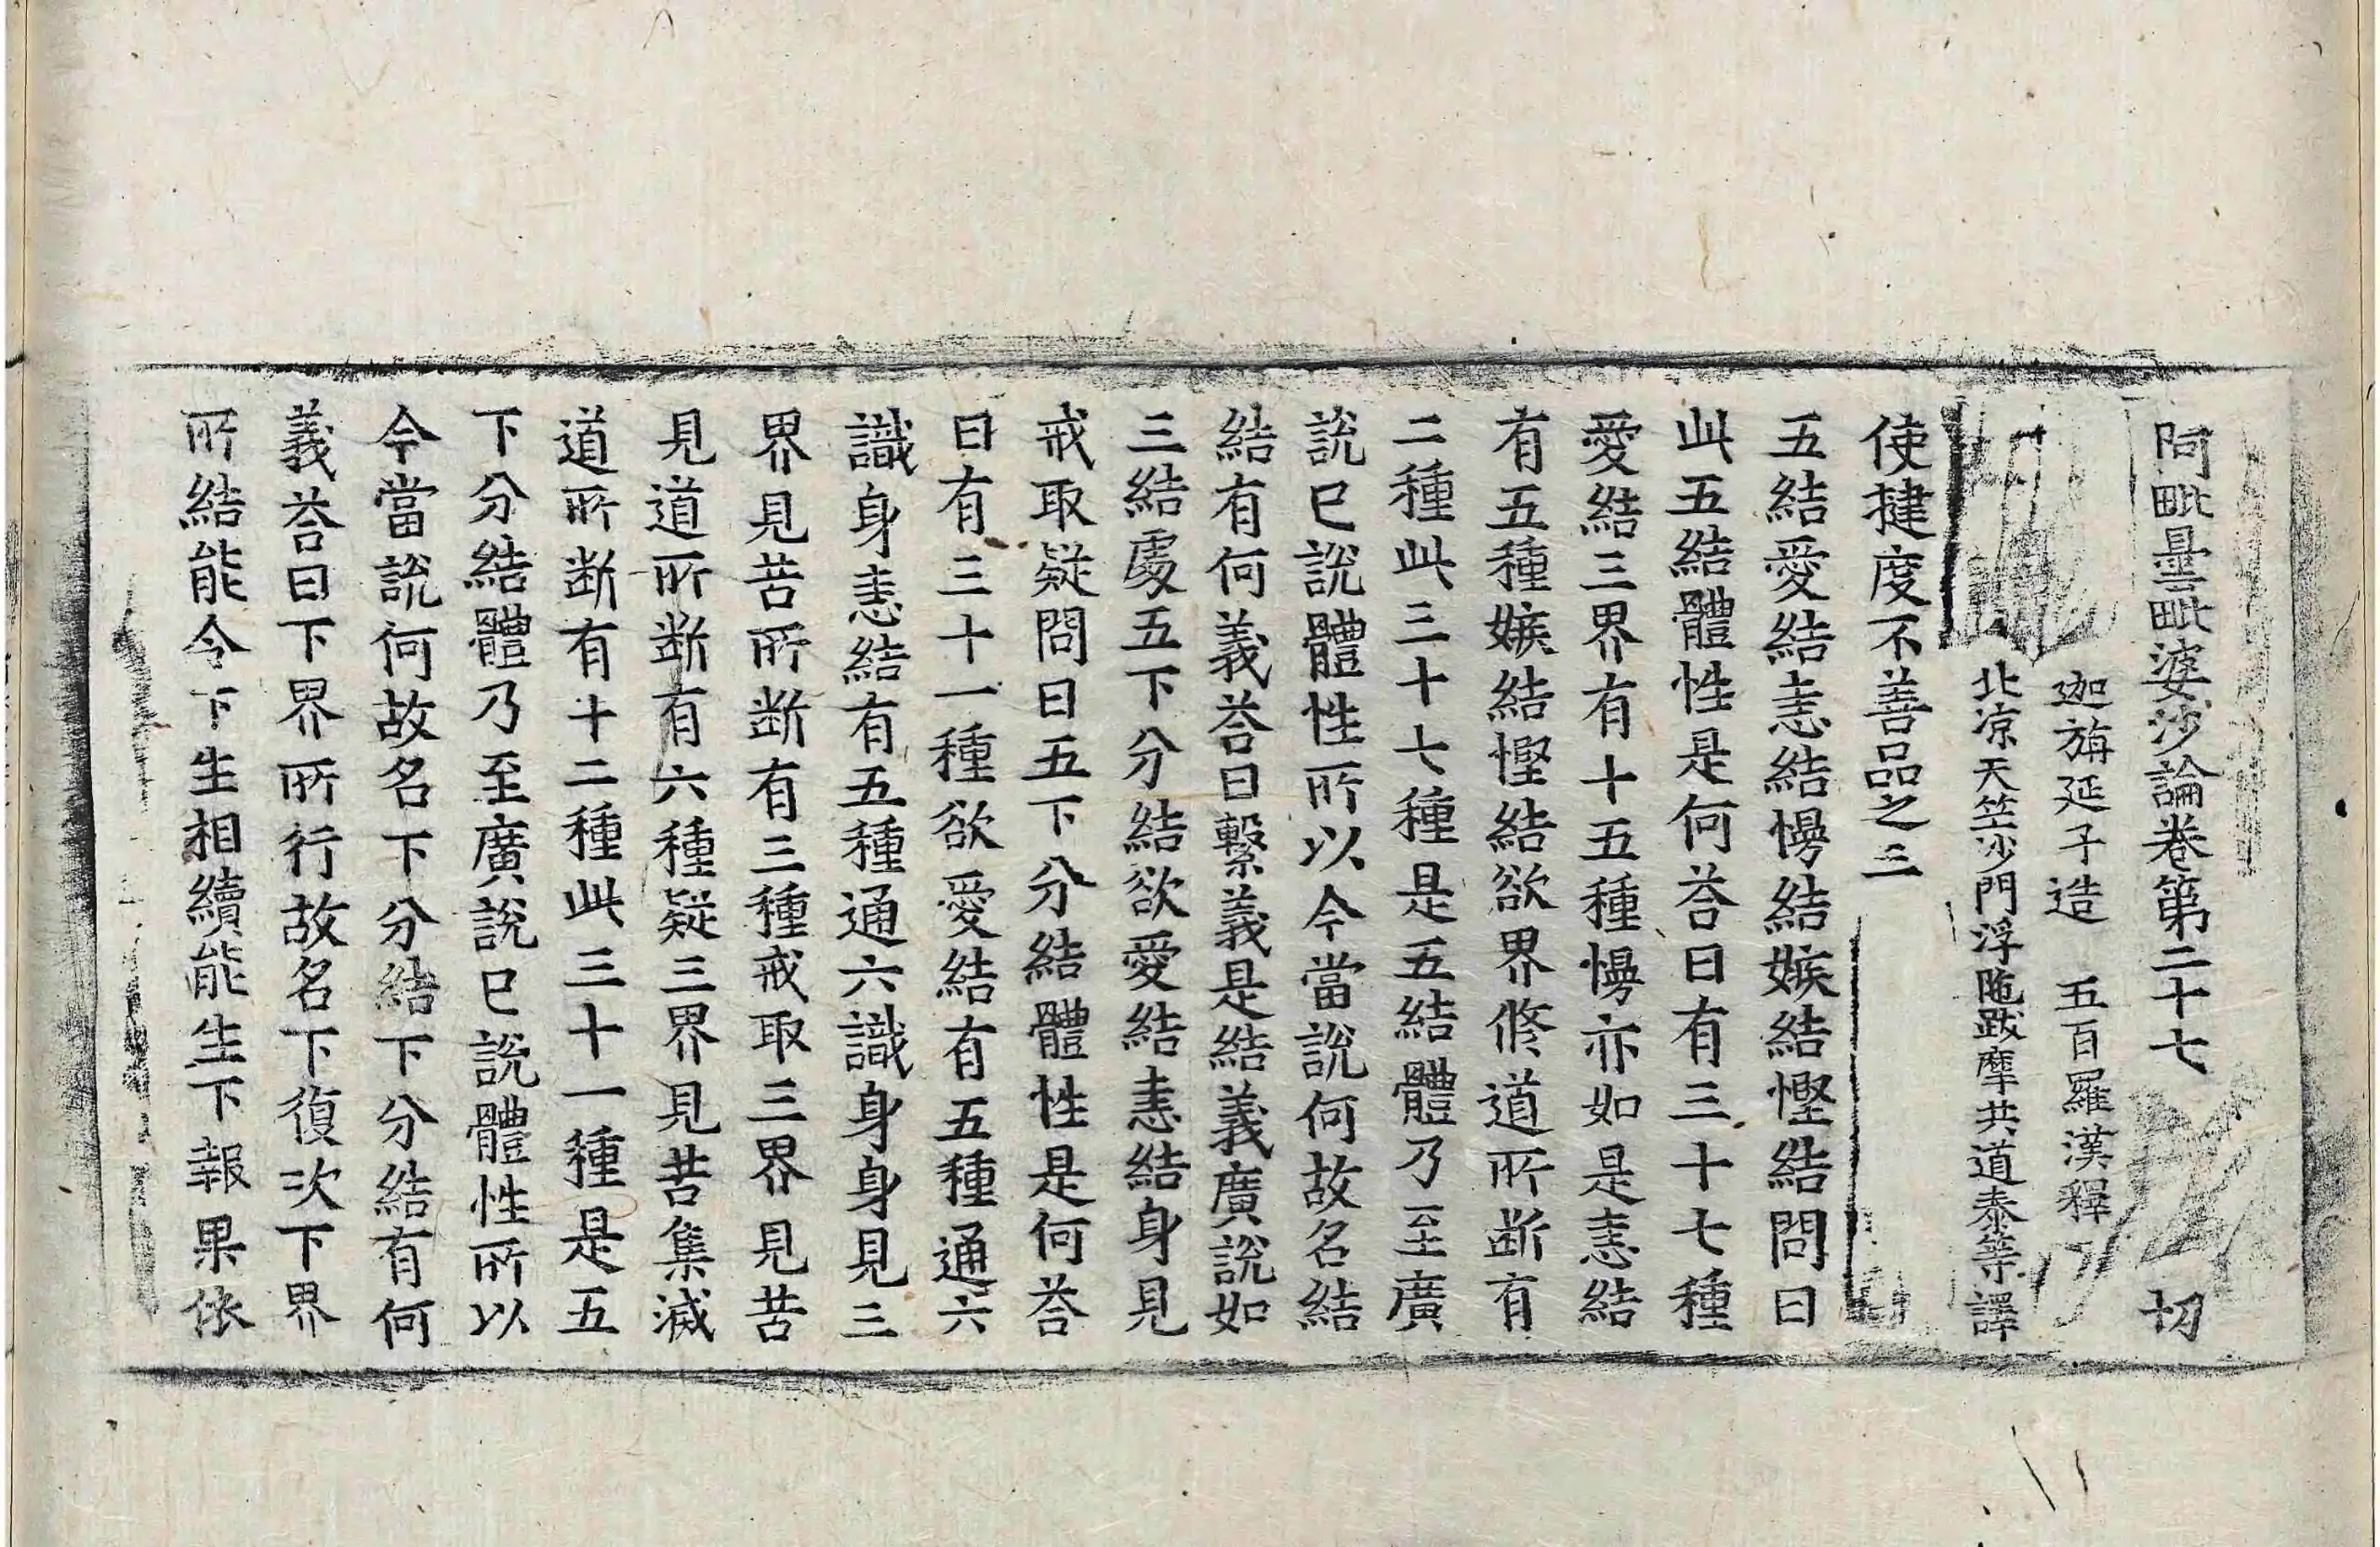 阿毗曇毗婆沙論卷第二十七 切
迦旃延子造 五百羅漢釋
北涼天竺沙門浮陁跋摩共道泰等譯
使揵度不善品之三
五結愛結恚結慢結嫉結慳結問曰
此五結體性是何荅曰有三十七種
愛結三界有十五種慢亦如是恚結
有五種嫉結慳結欲界修道所断有
二種此三十七種是五結體乃至廣
說已說體性所以今當說何故名結
結有何義荅曰繫義是結義廣說如
三結處五下分結欲愛結恚結身見
戒取疑問曰五下分結體性是何荅
曰有三十一種欲愛結有五種通六
識身恚結有五種通六識身身見三
界見苦所断有三種戒取三界見苦
見道所断有六種疑三界見苦集滅
道所断有十二種此三十一種是五
下分結體乃至廣說已說體性所以
今當說何故名下分結下分結有何
義荅曰下界所行故名下復次下界
所結能令下生相續能生下報果依